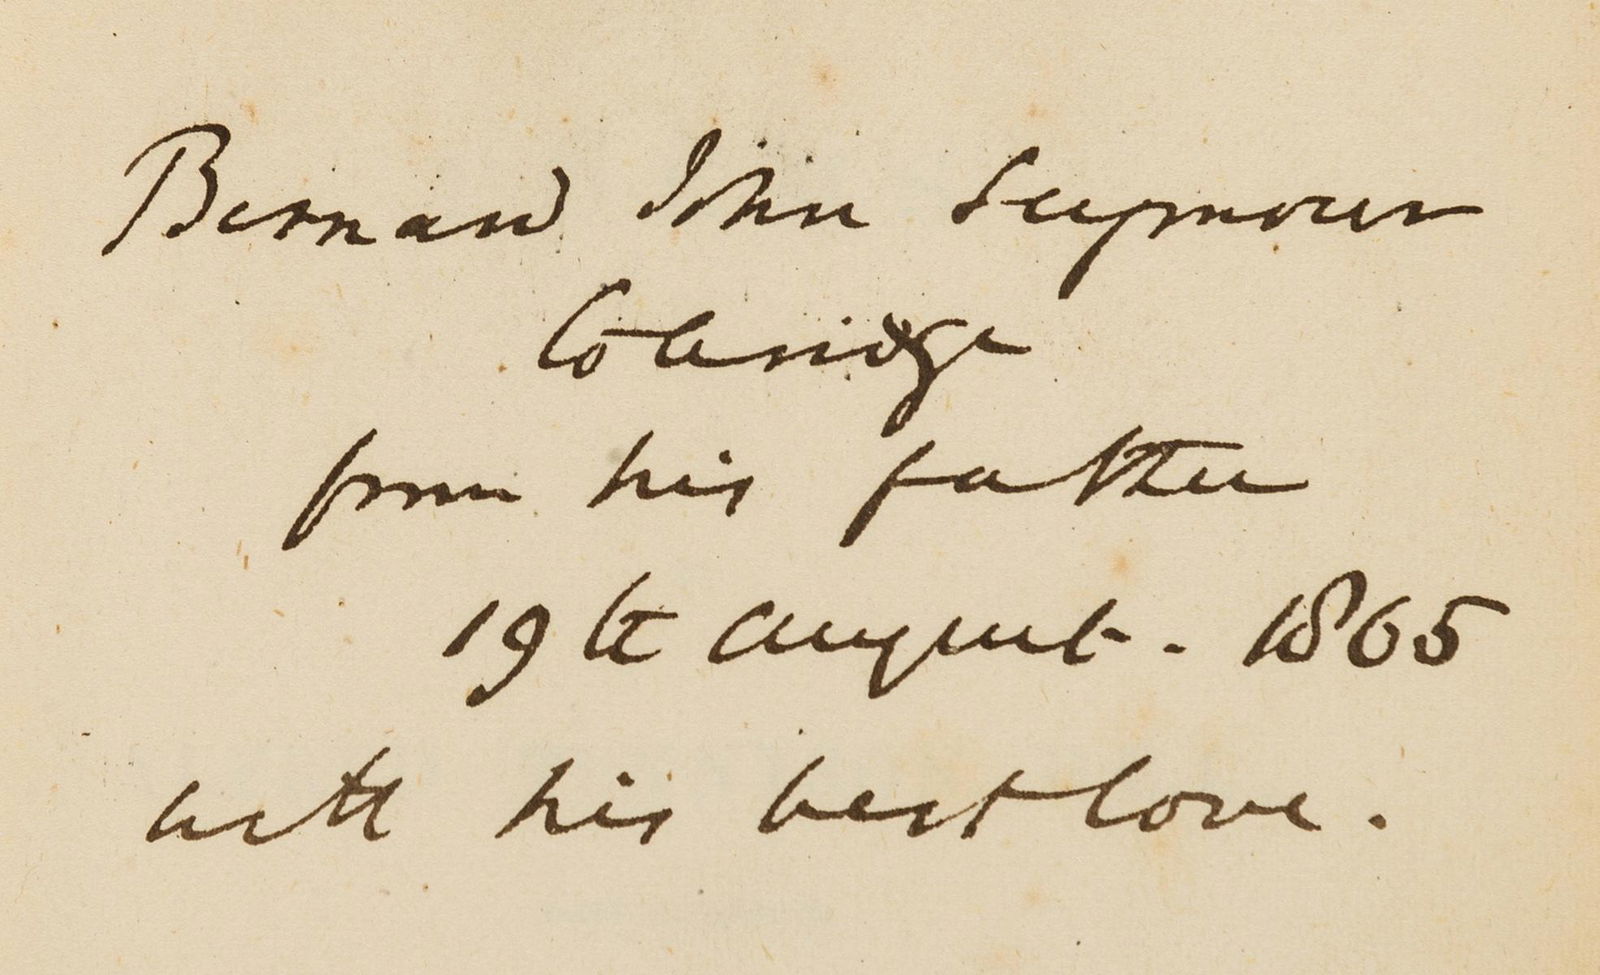 Bernard John Seymour
Coleridge
from his father
19th August. 1865
with his best love.